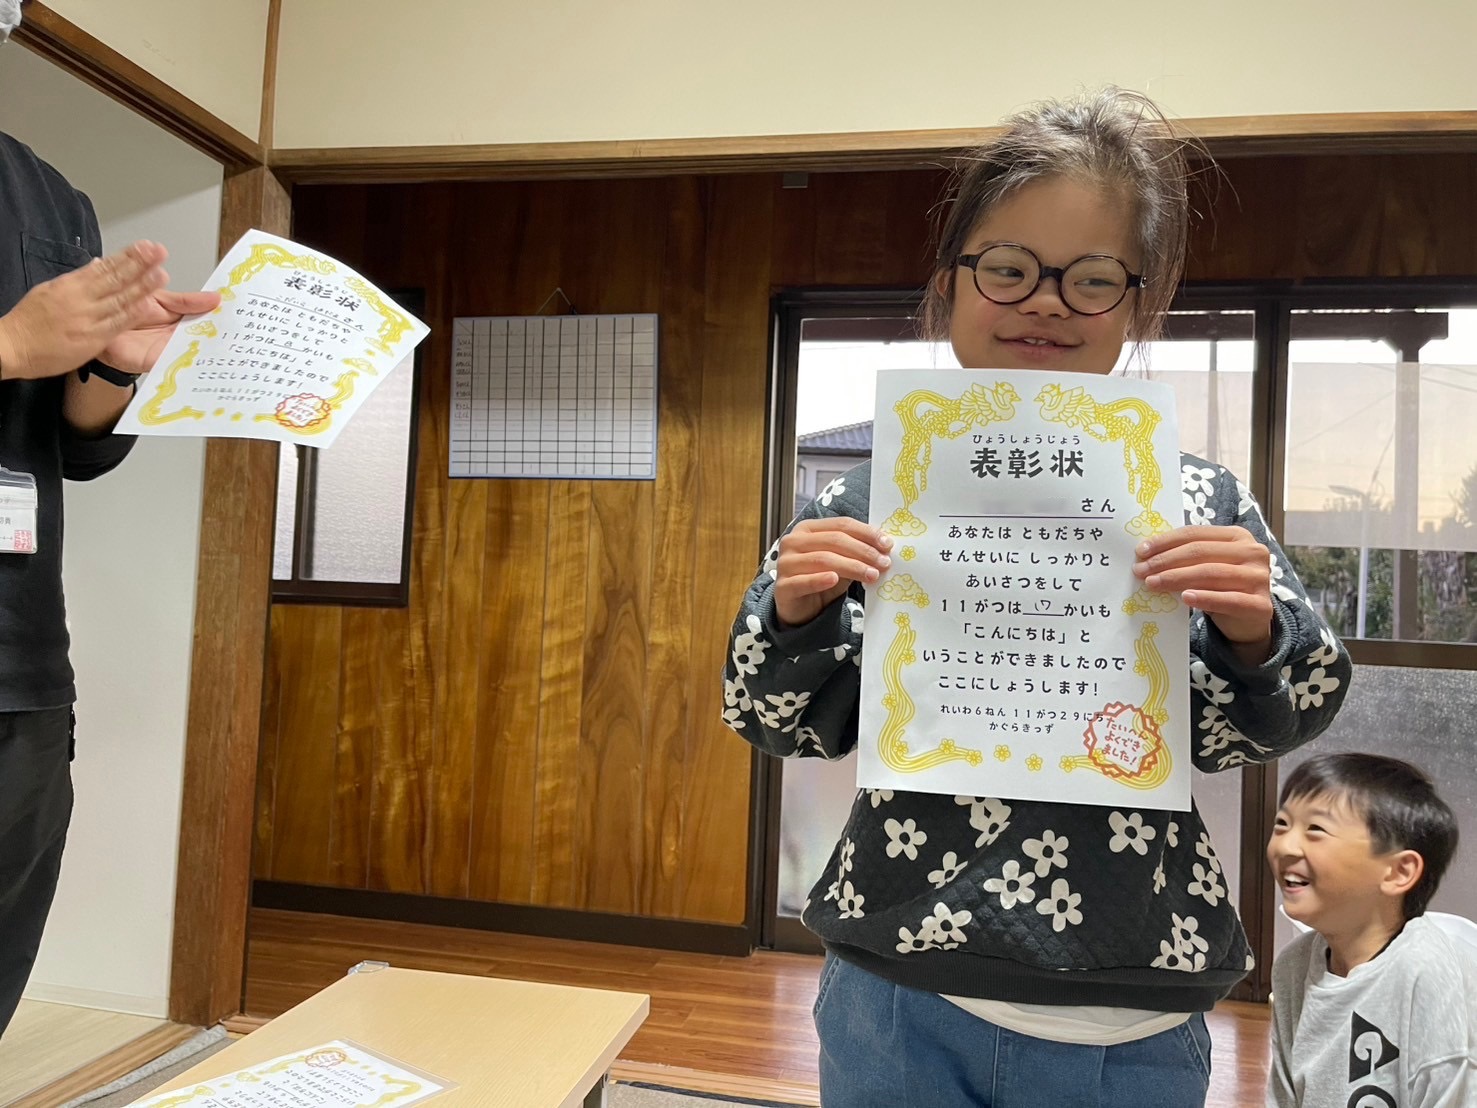 ひょうしょうじょう
表彰状
さん
あなたは ともだちや
せんせいに しっかりと
あいさつをして
11がつは 17 かいも
「こんにちは」と
いうことができましたので
ここにしょうします!
れいわ6ねん 11がつ29にち
かぐらきっず
たいへん
よくでき
ました!
ひょうしょうじょう
表彰状
さん
あなたは ともだちや
せんせいに しっかりと
あいさつをして
11がつは 8 かいも
「こんにちは」と
いうことができましたので
ここにしょうします!
れいわ6ねん 11がつ29に
かぐらきっず